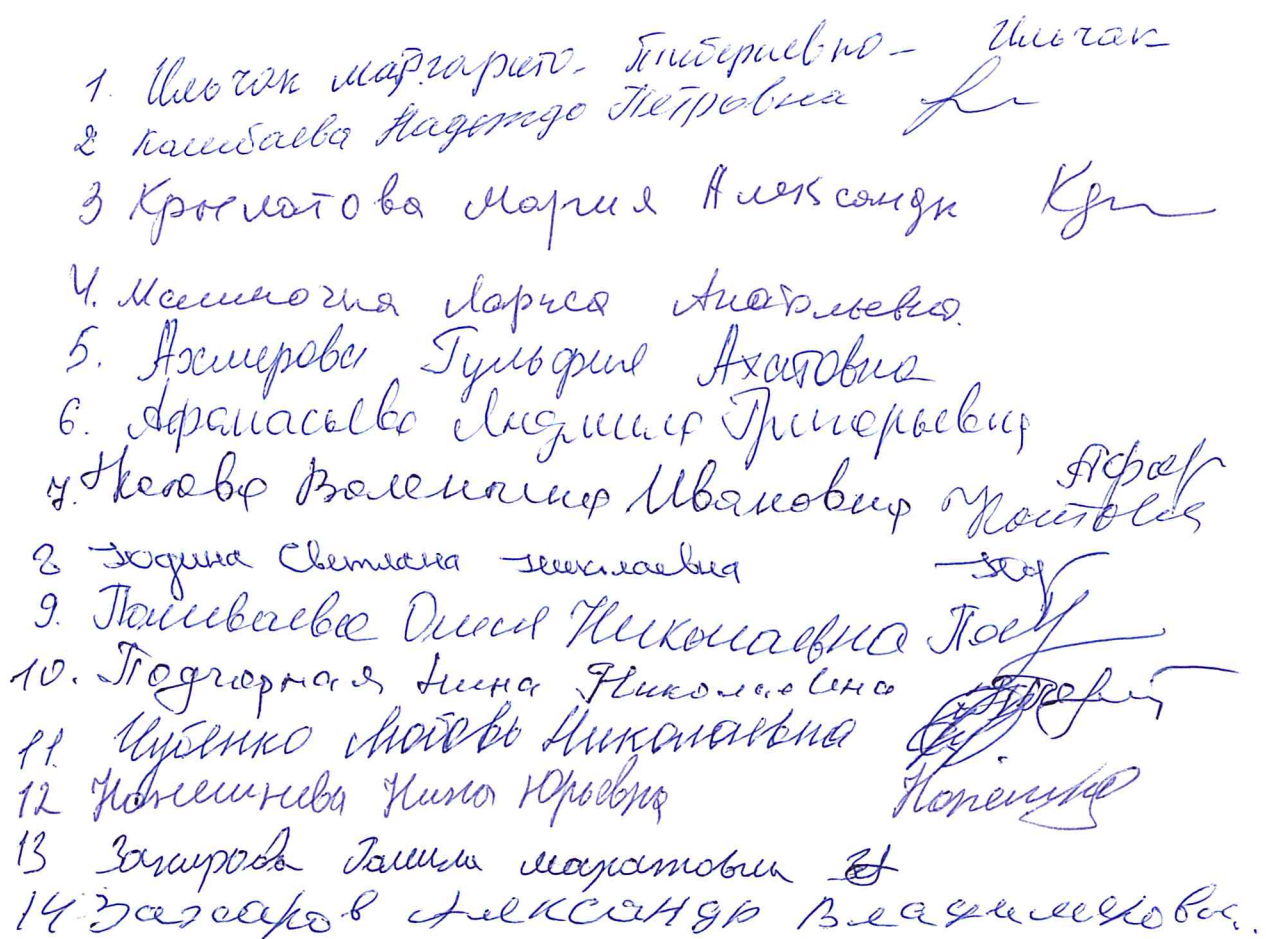 1. Ильчак Маргарита Тибериевна - Ильчак
2 Камбаева Надежда Петровна
3 Крылатова Мария Александ
4. Малиночка Лариса Анатольевна.
5. Ахмерова Гульфия Ахатовна
6. Афанасьева Людмила Григорьевна
7. Валентина Ивановна
8 Юдина Светлана Николаевна
9. Поливаева Олеся Николаевна
10. Подчорная Нина Николаевна
11. Чубенко Любовь Николаевна
12 Нина Юрьевна
13 Закирова Галила Маратовна
14. Захаров Александр